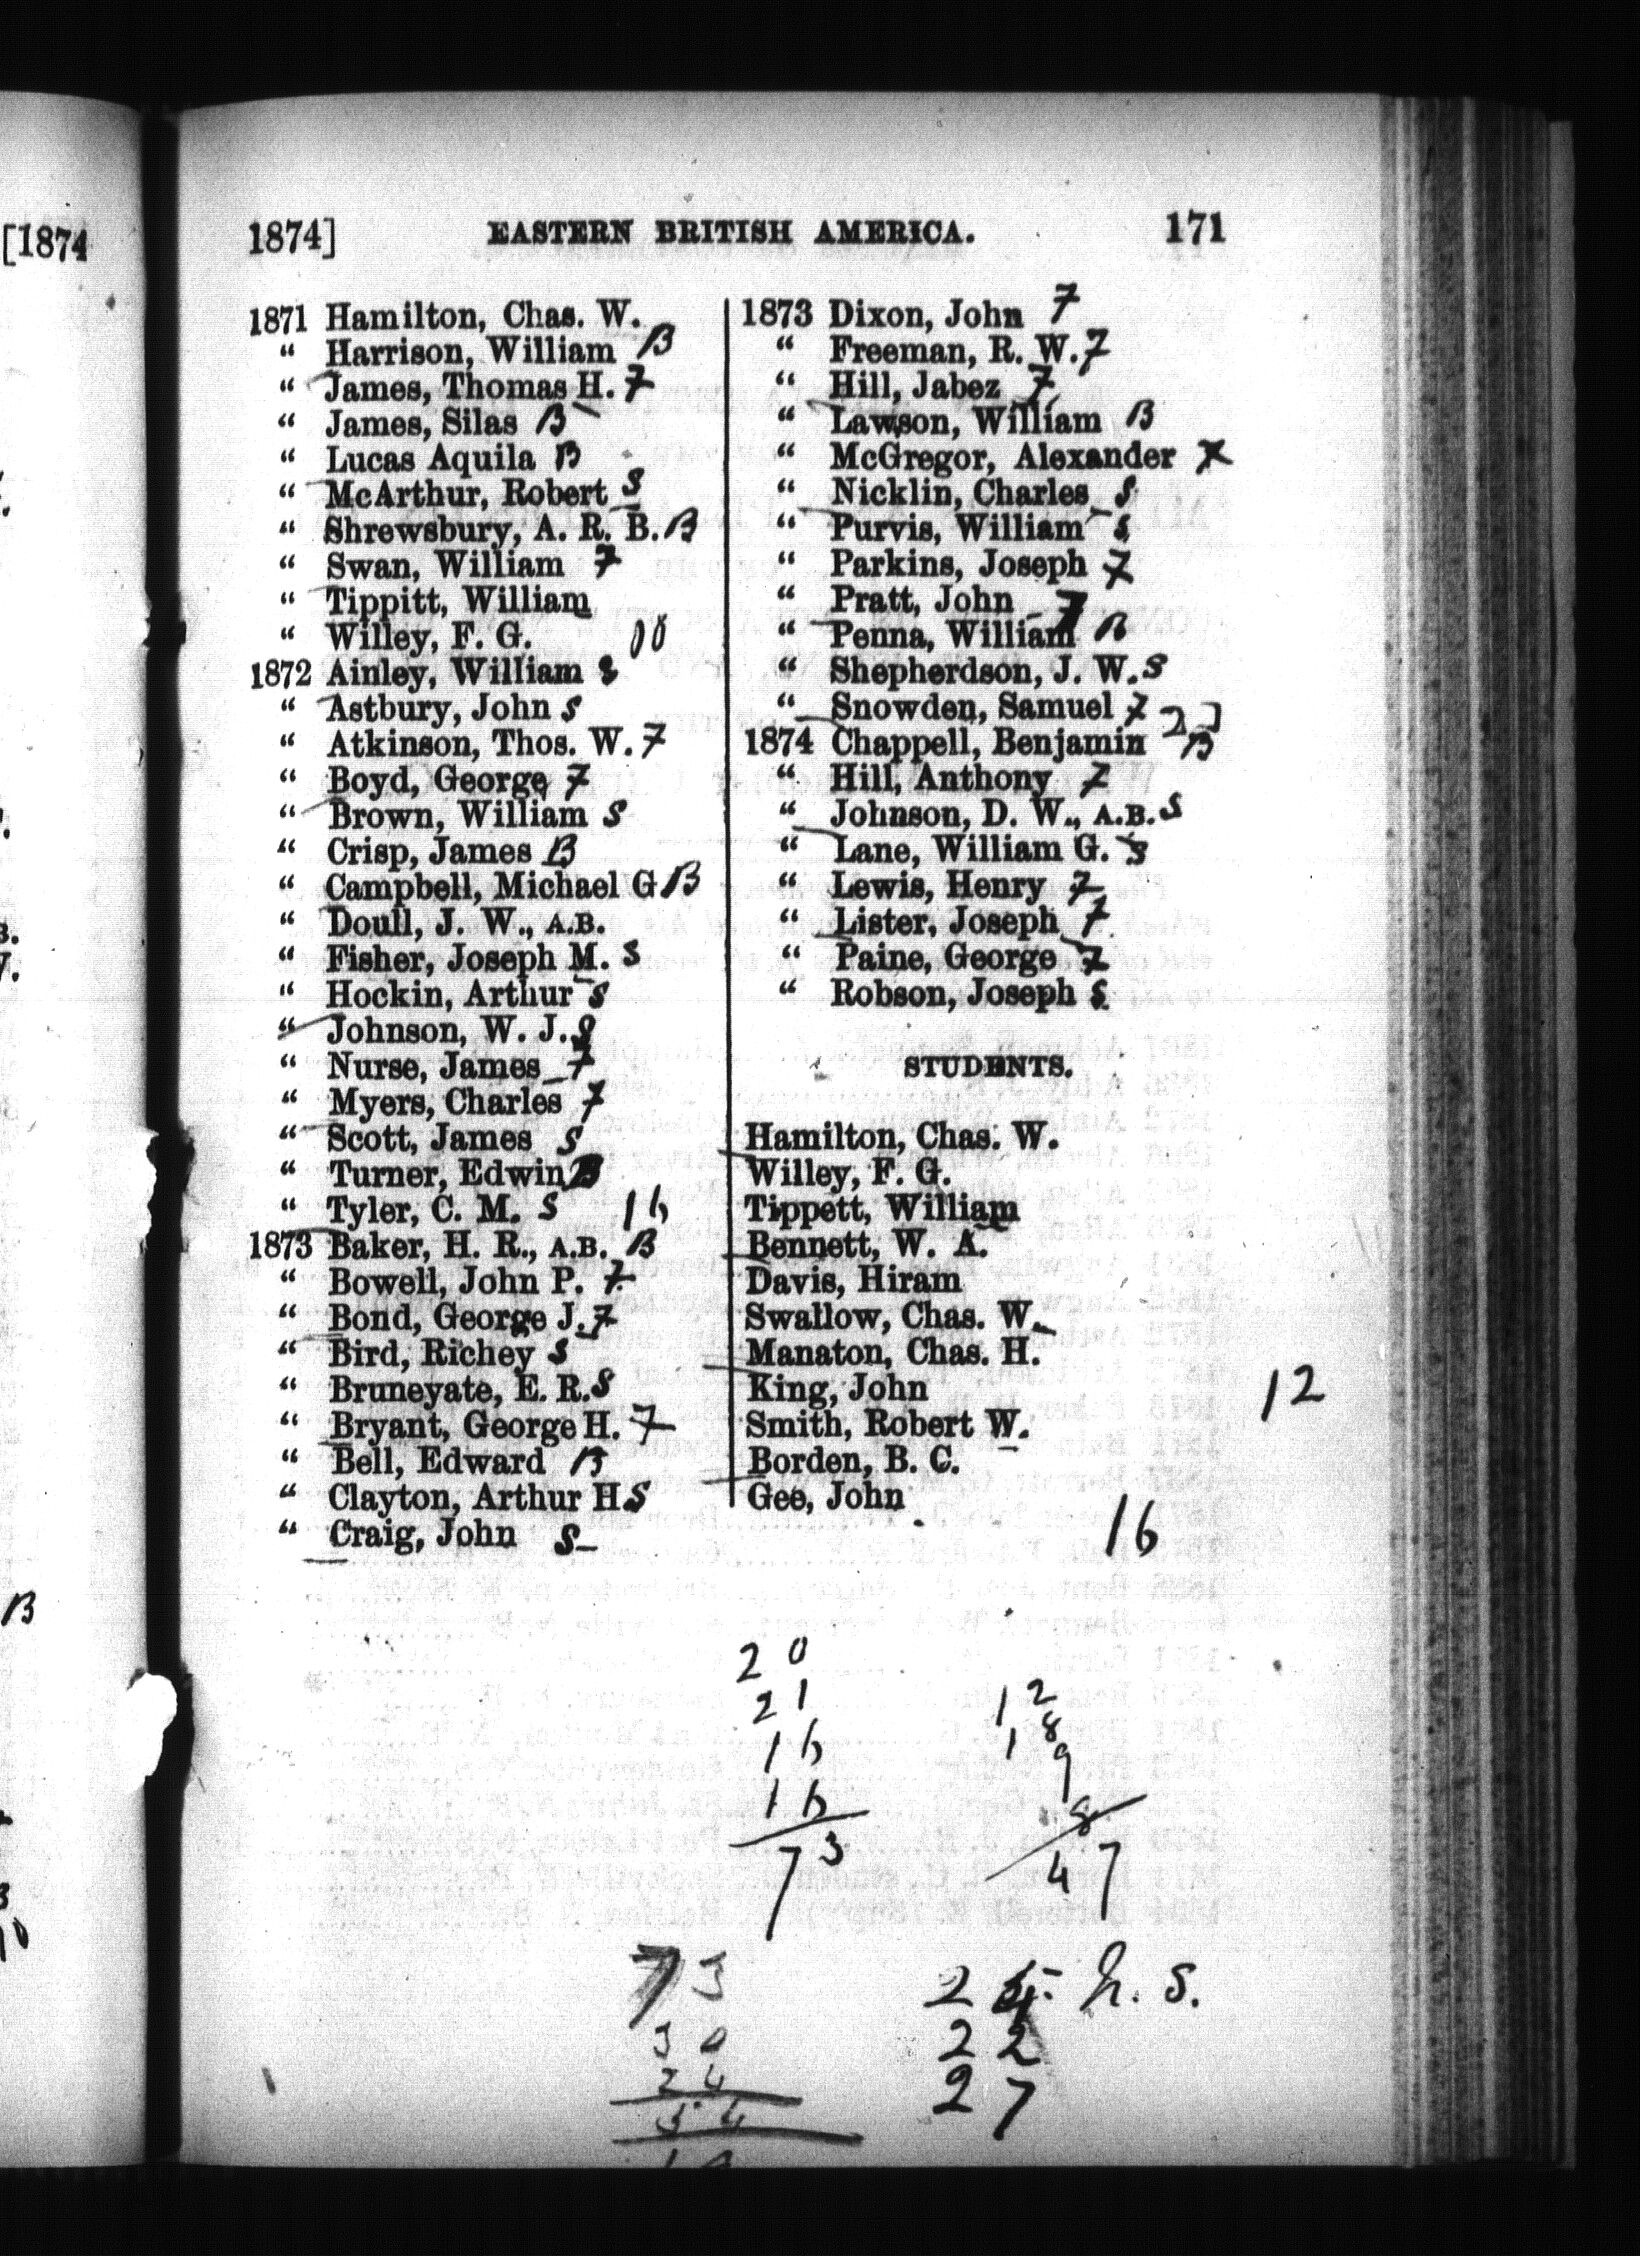 [1874
1874] EASTERN BRITISH AMERICA. 171
1871 Hamilton, Chas. W.
“ Harrison, William B
“ James, Thomas H. 7
“ James, Silas B
“ Lucas Aquila B
“ McArthur, Robert S
“ Shrewsbury, A. R. B. B
“ Swan, William 7
“ Tippitt, William
“ Willey, F. G.
1872 Ainley, William S
“ Astbury, John S
“ Atkinson, Thos. W. 7
“ Boyd, George 7
“ Brown, William S
“ Crisp, James B
“ Campbell, Michael G B
“ Doull, J. W., A.B.
“ Fisher, Joseph M. S
“ Hockin, Arthur S
“ Johnson, W. J. S
“ Nurse, James 7
“ Myers, Charles 7
“ Scott, James S
“ Turner, Edwin B
“ Tyler, C. M. S 16
1873 Baker, H. R., A.B. B
“ Bowell, John P. 7
“ Bond, George J. 7
“ Bird, Richey S
“ Bruneyate, E. R. S
“ Bryant, George H. 7
“ Bell, Edward B
“ Clayton, Arthur H. S
“ Craig, John S
1873 Dixon, John 7
“ Freeman, R. W. 7
“ Hill, Jabez 7
“ Lawson, William B
“ McGregor, Alexander 7
“ Nicklin, Charles S
“ Purvis, William S
“ Parkins, Joseph 7
“ Pratt, John 7
“ Penna, William B
“ Shepherdson, J. W. S
“ Snowden, Samuel 7
1874 Chappell, Benjamin B
“ Hill, Anthony 7
“ Johnson, D. W., A.B. S
“ Lane, William G. S
“ Lewis, Henry 7
“ Lister, Joseph 7
“ Paine, George 7
“ Robson, Joseph S
STUDENTS.
Hamilton, Chas. W.
Willey, F. G.
Tippett, William
Bennett, W. A.
Davis, Hiram
Swallow, Chas. W.
Manaton, Chas. H.
King, John
Smith, Robert W.
Borden, B. C.
Gee, John
12
16
B
20
21
16
16
73
12
18
9
8
47
73
30
24
54
h. S.
22
27